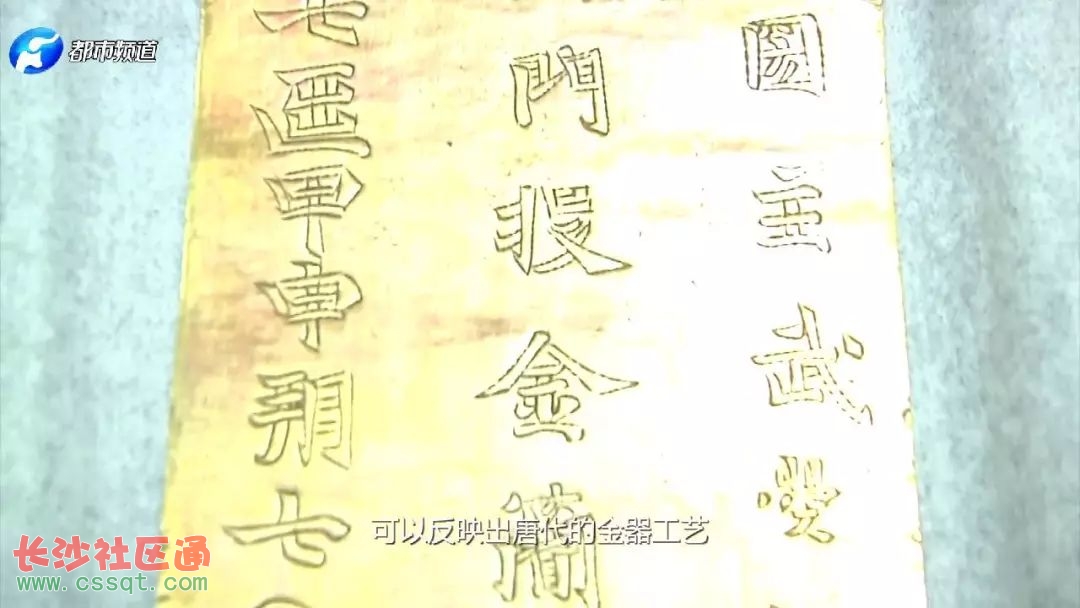 都市频道
國主武曌
門投金簡
七𠥱甲申朔七
可以反映出唐代的金器工艺
长沙社区通
www.cssqt.com